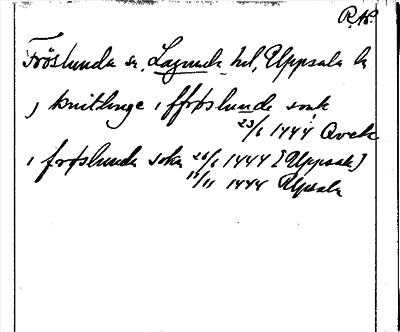 R.A.
Fröslunda sn, Lagunda hd, Uppsala l.
j knitlinge i ffrøslunda sokn
23/1 1444 Aveh
i frøslunda sokn 26/1 1444 [Uppsala]
11/11 1444 Upsala